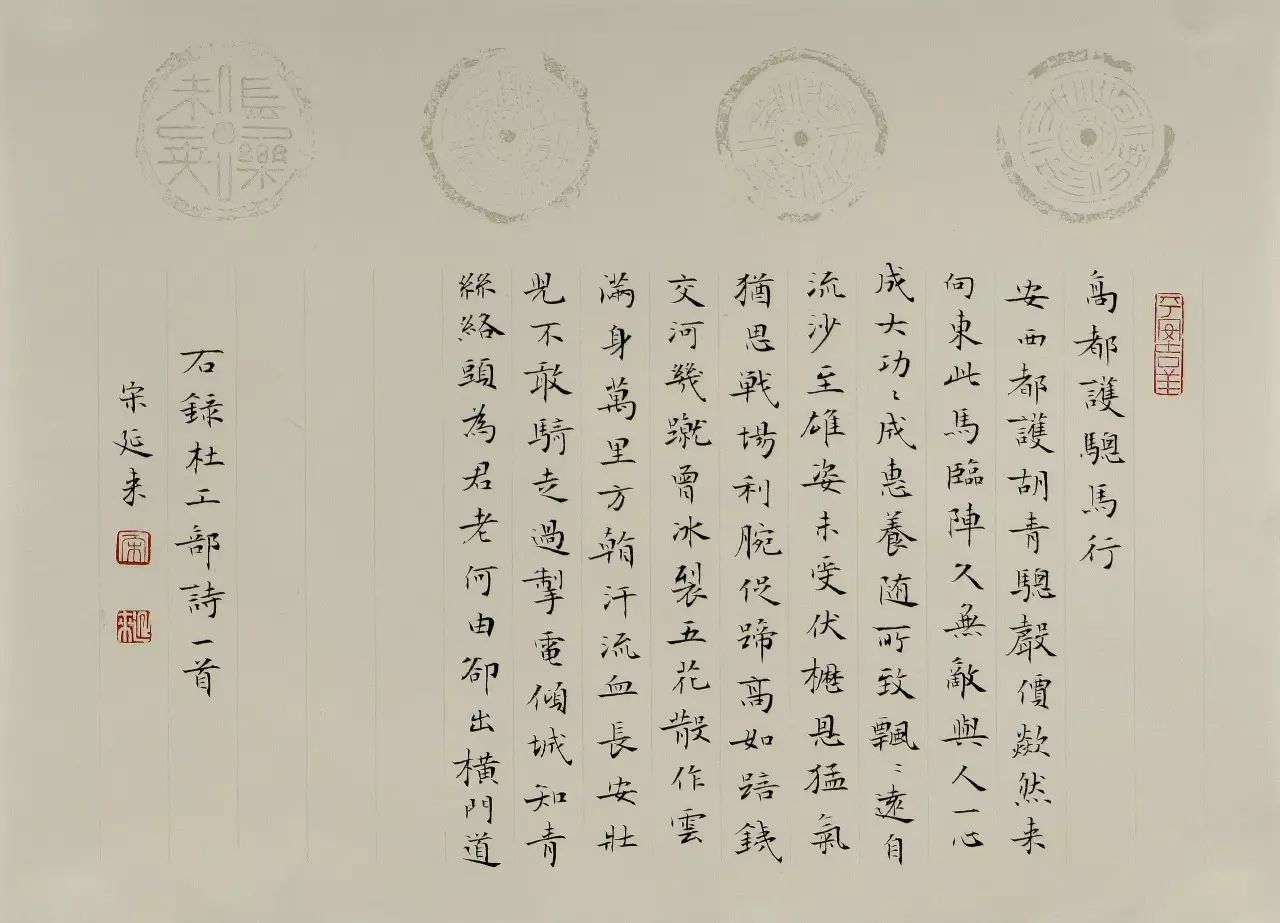 平安吉羊
高都護驄馬行
安西都護胡青驄聲價歘然来
向東此馬臨陣久無敵與人一心
成大功〻成惠養随所致飄〻遠自
流沙至雄姿未受伏櫪恩猛氣
猶思戰場利腕促蹄高如踣鐵
交河幾蹴曾冰裂五花散作雲
滿身萬里方看汗流血長安壯
兒不敢騎走過掣電傾城知青
絲絡頭為君老何由卻出橫門道
右録杜工部詩一首
宋延来
宋
延来
長樂未央